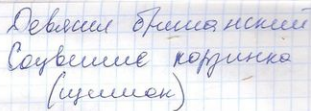 Девясил британский
Соцветие корзинка
(щиток)